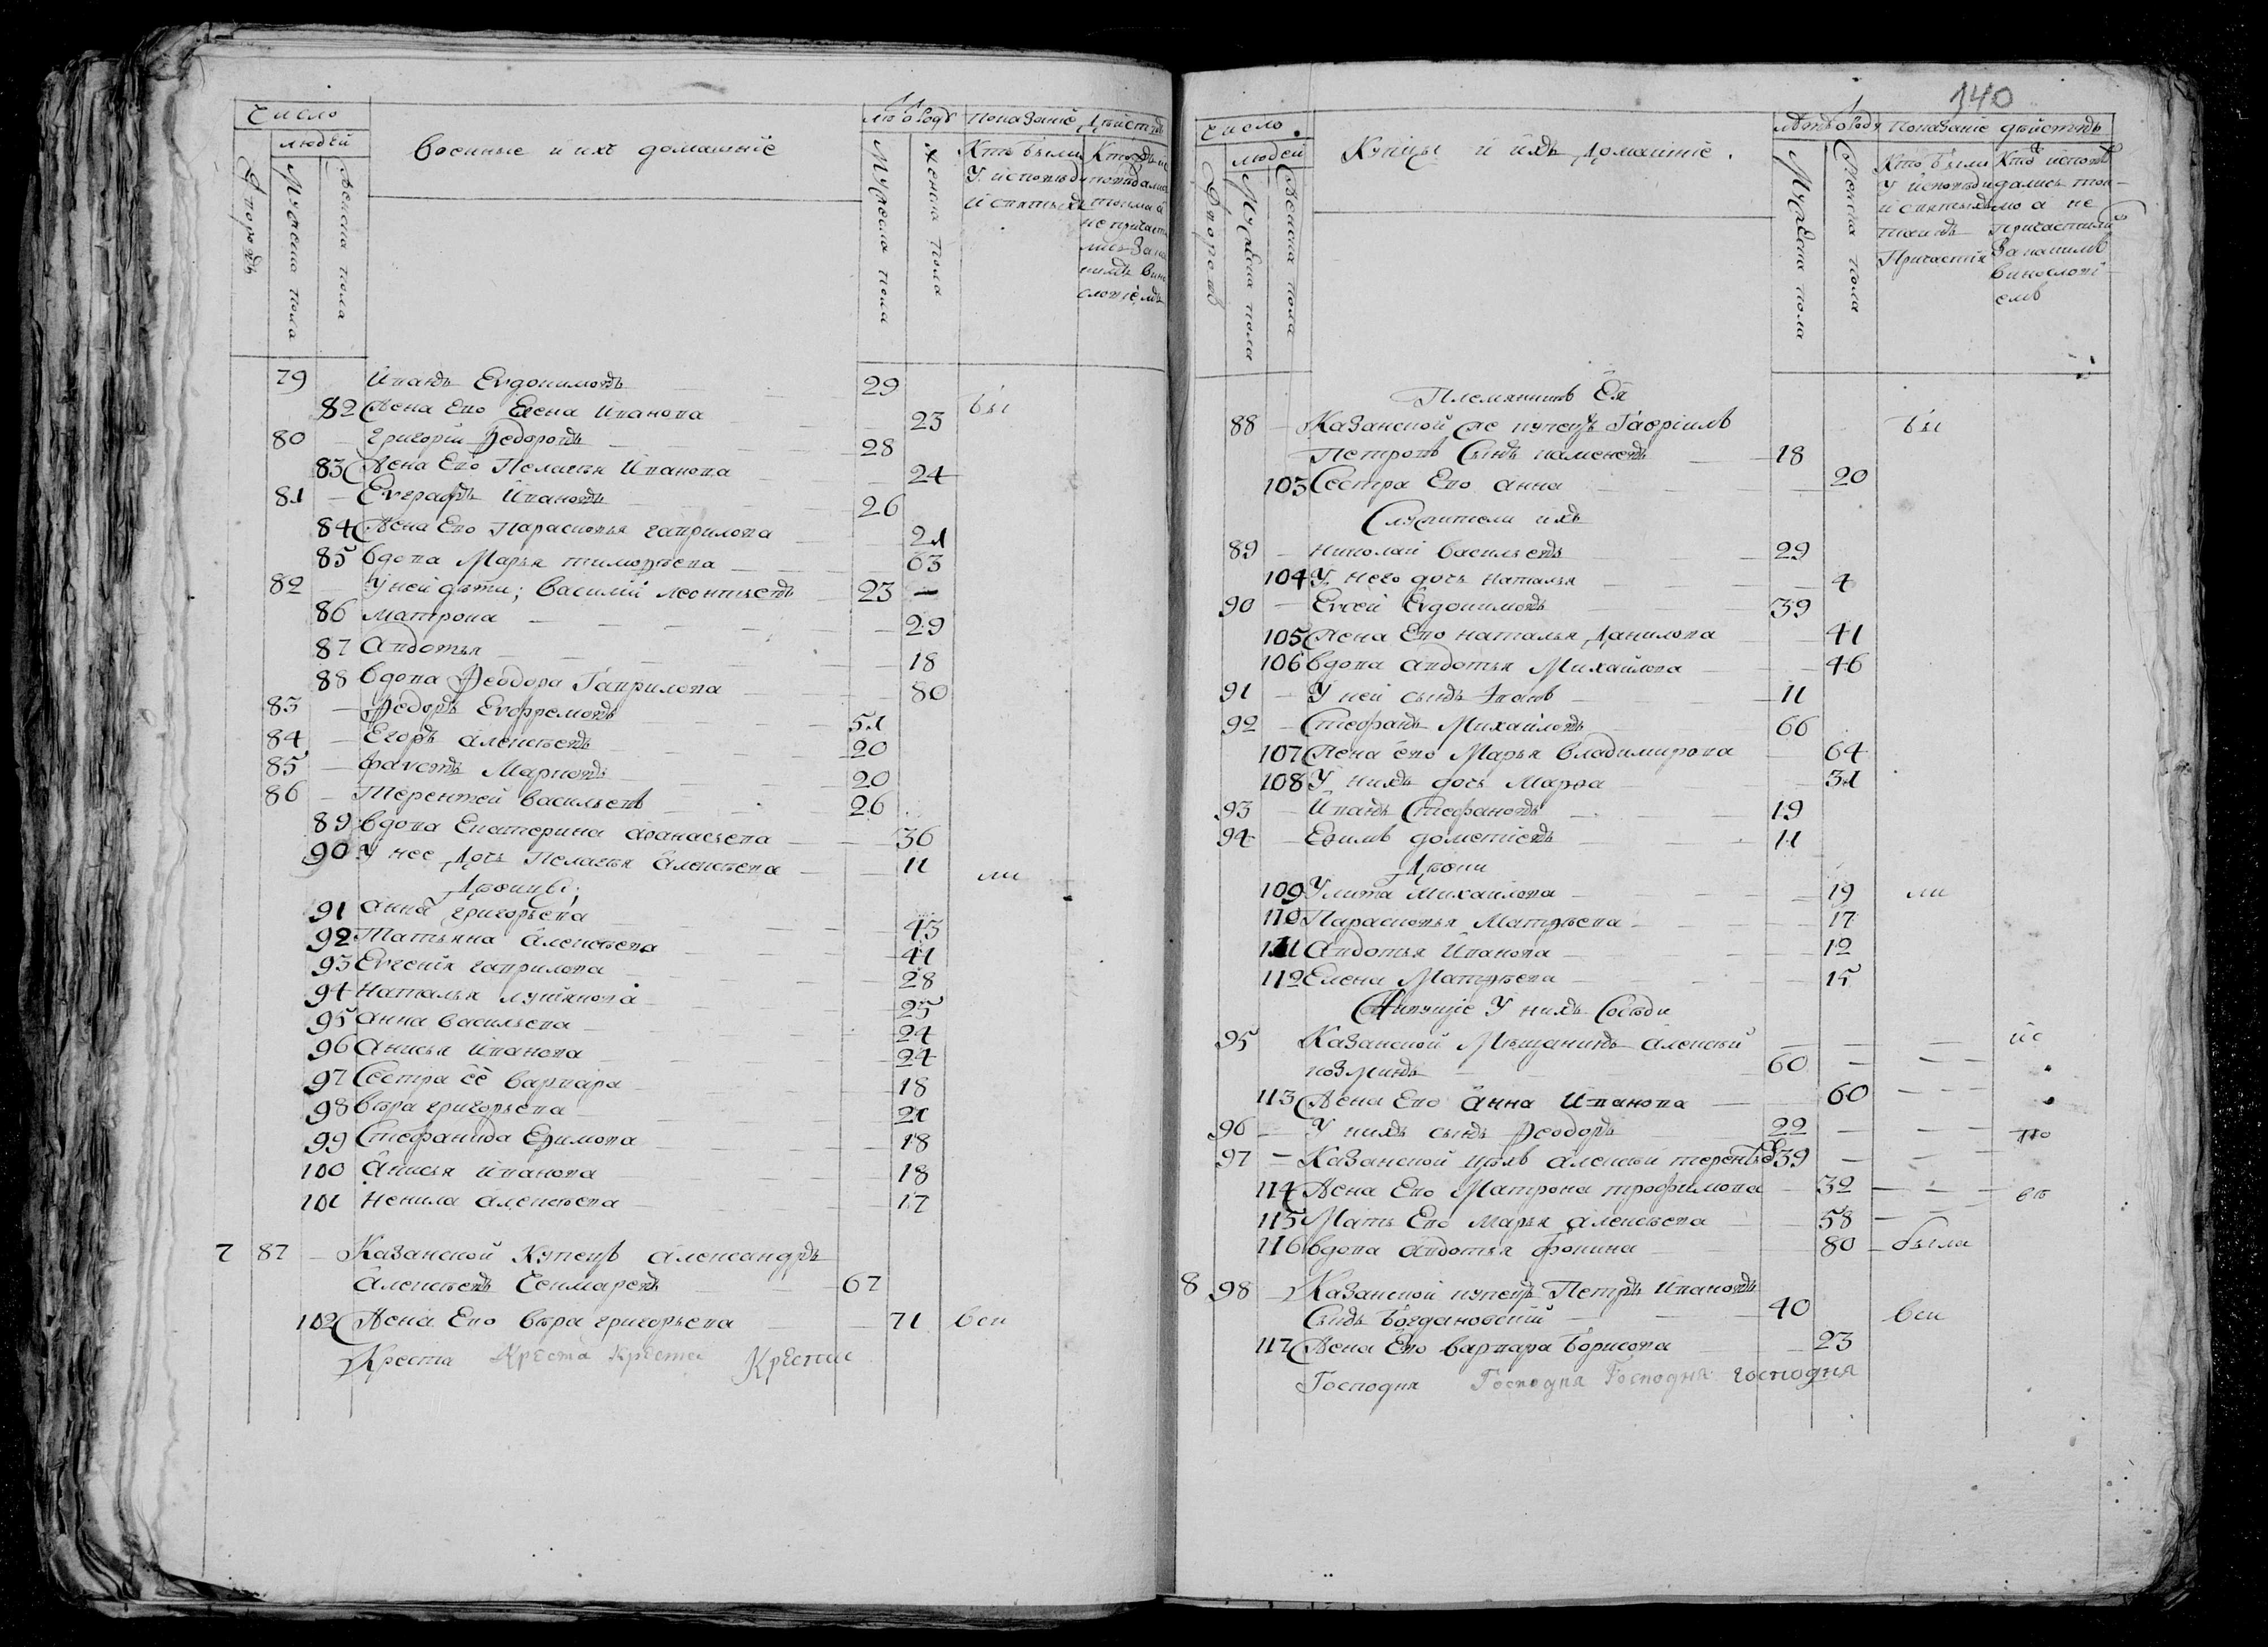 Число
людей
Дворовъ
Мужеска пола
Женска пола
Военные и ихъ домашніе
Лѣта от роду
Мужеска пола
Женска пола
Показаніе дѣйствъ
Кто были
У исповѣди
и святыхъ
79 Иванъ Евдокимовъ 29
82 Жена Ево Елена Иванова 23 бы
80 Григорій Федоровъ 28
83 Жена Ево Пелагья Иванова 24
81 Евграфъ Ивановъ 26
84 Жена Ево Парасковья Гаврилова 21
85 Вдова Марья Тимофѣева 63
82 У ней дѣти; Василій Леонтьевъ 23
86 Матрона 29
87 Авдотья 18
88 Вдова Феодора Гаврилова 80
83 Федоръ Евфремовъ 51
84 Егоръ Алексѣевъ 20
85 Фавстъ Марковъ 20
86 Терентей Васильевъ 26
89 Вдова Екатерина Афанасьева 36
90 У нее дочь Пелагья Алексѣева 11 ли
Дѣвицы;
91 Анна Григорьева 43
92 Татьяна Алексѣева 41
93 Евгенія Гаврилова 28
94 Наталья 25
95 Анна Васильева 24
96 Анисья Иванова 24
97 Сестра её Варвара 18
98 Вѣра Григорьева 21
99 Стефанида Ефимова 18
100 Анисья Иванова 18
101 Ненила Алексѣева 17
7 87 Казанской Купецъ Александръ
Алексѣевъ Чекмаревъ 67
102 Жена Ево Вѣра Григорьева 71 вси
Креста Креста Креста Креста
140
Число
людей
Дворовъ
Мужеска пола
Женска пола
Купцы и ихъ домашніе.
Лѣта от роду
Мужеска пола
Женска пола
Показаніе дѣйствъ
Кто были
У исповѣди
и святыхъ
таинъ
Причастія
Кто исповѣ
дались ток
мо а не
причастились
За какимъ
винословi
емъ
Племянникъ Ея
88 Казанской же купецъ Гавріилъ бы
Петровъ Сынъ Каменевъ 18
103 Сестра Ево Анна 20
Служители ихъ
89 Николай Васильевъ 29
104 У него дочь Наталья 4
90 Евсей Евдокимовъ 39
105 Жена Ево Наталья Данилова 41
106 Вдова Авдотья Михайлова 46
91 У ней сынъ Яковъ 11
92 Стефанъ Михайловъ 66
107 Жена Ево Марья Владимирова 64
108 У нихъ дочь Марфа 31
93 Иванъ Стефановъ 19
94 Ефимъ Дометіевъ 11
Дѣвки
109 Улита Михайлова 19 ли
110 Парасковья Матфѣева 17
111 Авдотья Иванова 12
112 Елена Матфѣева 15
Живущіе У нихъ Сосѣди
95 Казанской Мѣщанинъ Алексѣй ис
Козминъ 60
113 Жена Ево Анна Иванова 60
96 У нихъ сынъ Феодоръ 22 по
97 Казанской цѣхъ Алексѣй Терентьевъ 39
114 Жена Ево Матрона Трофимова 32 вѣ
115 Мать Ево Марья Алексѣева 58
116 Вдова Авдотья Фокина 80 была
8 98 Казанской купецъ Петръ Ивановъ
Сынъ Богдановскій 40 вси
117 Жена Ево Варвара Борисова 23
Господня Господня Господня Господня